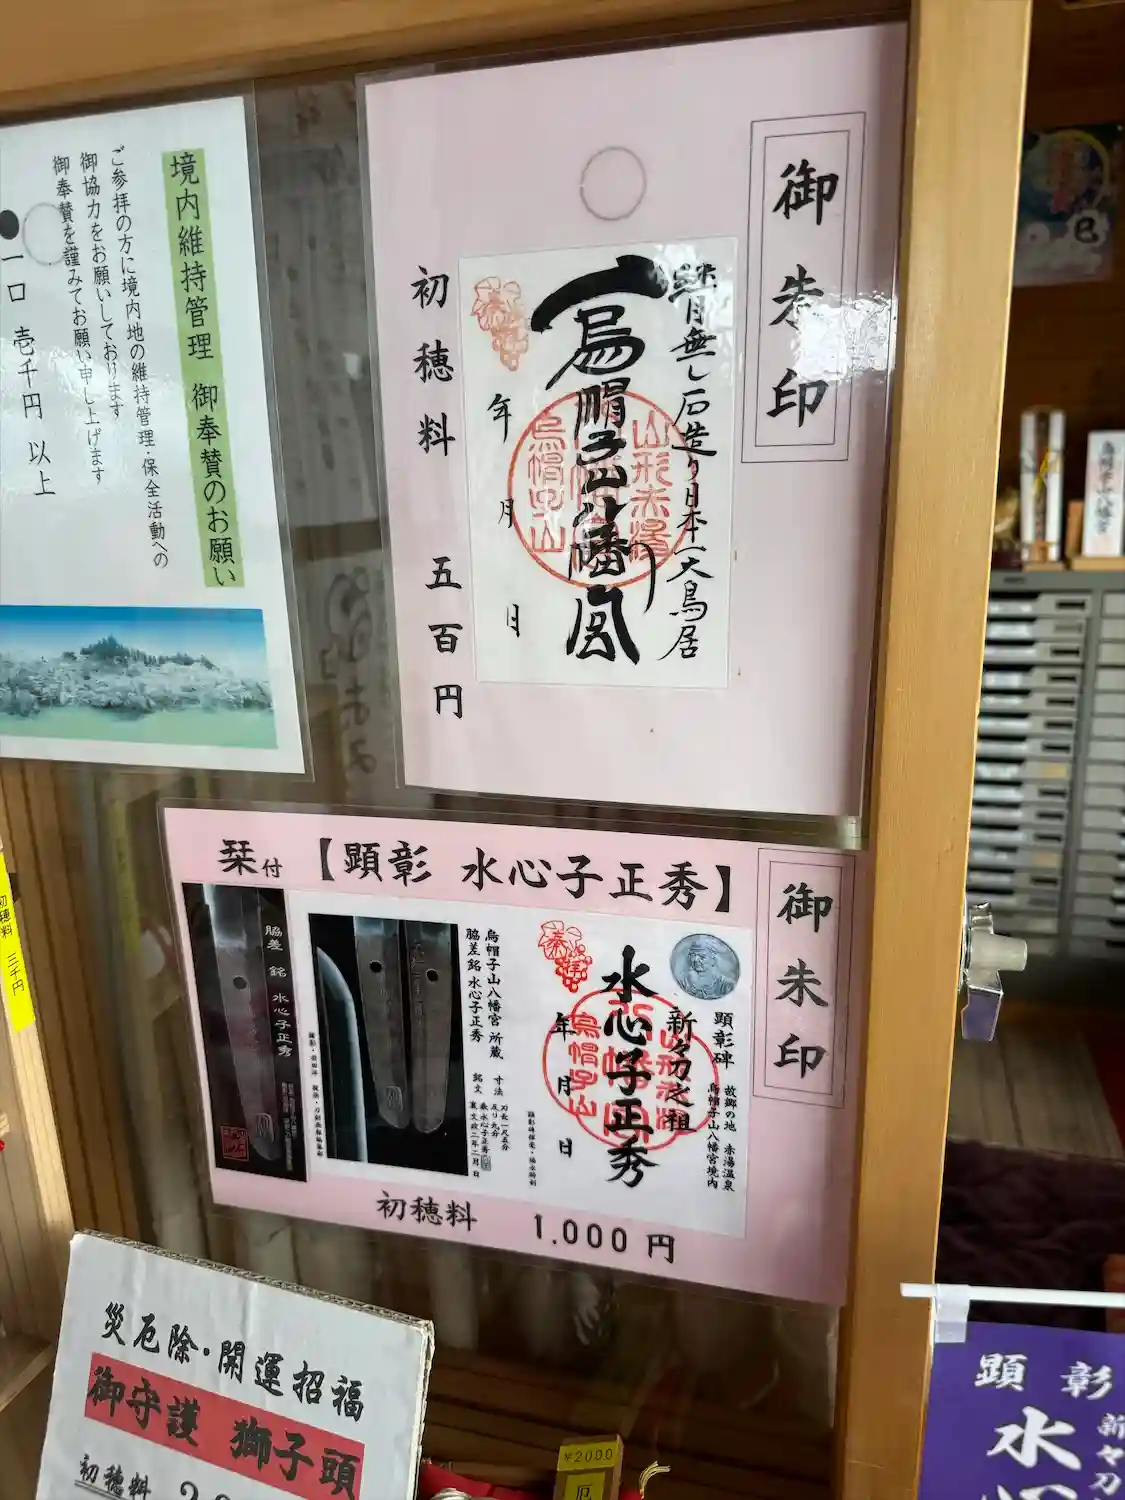 境内維持管理 御奉賛のお願い
ご参拝の方に境内地の維持管理・保全活動への
御協力をお願いしております
御奉賛を謹みてお願い申し上げます
●一口 壱千円 以上
御朱印
継目無し石造り日本一大鳥居
烏帽子山八幡宮
山形赤湯
八幡宮
烏帽子山
奉拝
年 月 日
初穂料 五百円
御朱印
栞付【顕彰 水心子正秀】
顕彰碑
故郷の地 赤湯温泉
烏帽子山八幡宮境内
新々刀之祖
水心子正秀
奉拝
年 月 日
烏帽子山
烏帽子山八幡宮 所蔵
脇差銘 水心子正秀
寸法 刃長一尺五分
反り九分
銘文 表 水心子正秀
裏 文政二年二月日
脇差 銘 水心子正秀
初穂料 1,000円
初穂料 三千円
災厄除・開運招福
御守護 獅子頭
初穂料
¥2000
厄
顕彰
水
新々刀
巳
烏帽子山八幡宮